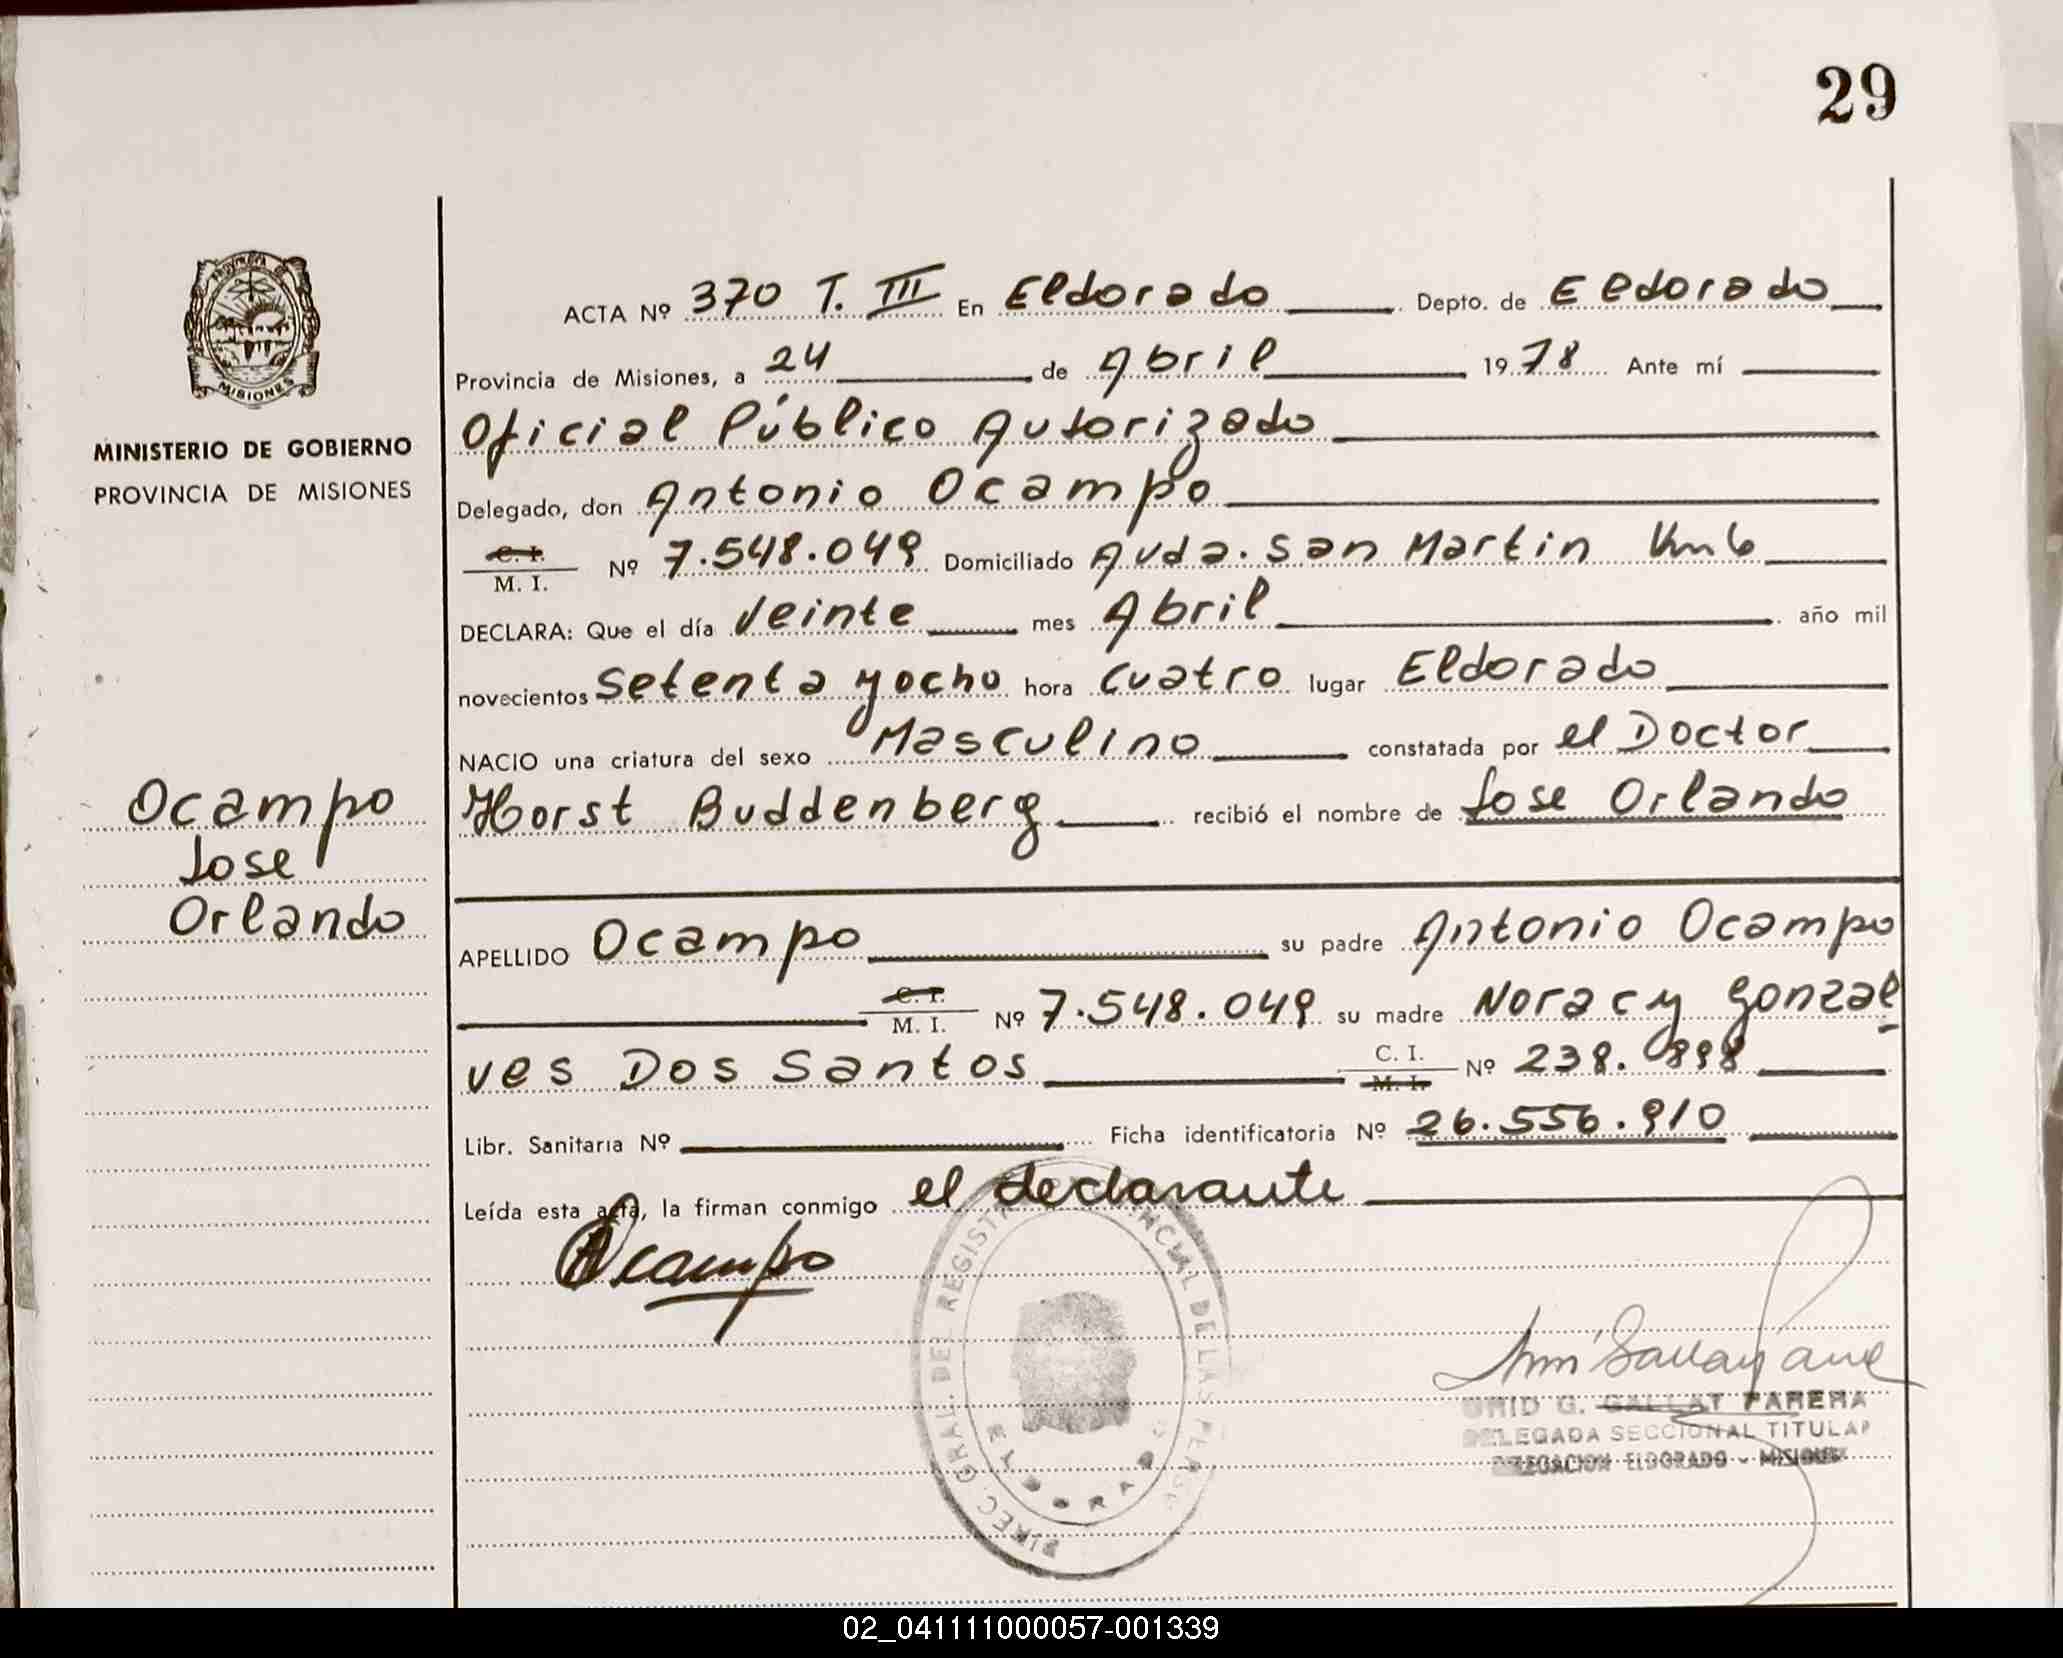 29
PROVINCIA DE
MISIONES
MINISTERIO DE GOBIERNO
PROVINCIA DE MISIONES
Ocampo
Jose
Orlando
ACTA Nº 370 T. III En Eldorado Depto. de Eldorado
Provincia de Misiones, a 24 de Abril 1978 Ante mí
Oficial Público Autorizado
Delegado, don Antonio Ocampo
C. I.
M. I. Nº 7.548.049 Domiciliado Avda. San Martin Km 6
DECLARA: Que el día veinte mes Abril año mil
novecientos setenta y ocho hora cuatro lugar Eldorado
NACIO una criatura del sexo Masculino constatada por el Doctor
Horst Buddenberg recibió el nombre de Jose Orlando
APELLIDO Ocampo su padre Antonio Ocampo
C. I.
M. I. Nº 7.548.049 su madre Noracy Gonzal-
ves Dos Santos C. I.
M. I. Nº 238.898
Libr. Sanitaria Nº Ficha identificatoria Nº 26.556.910
Leída esta acta, la firman conmigo el declarante
Ocampo
DIREC. GRAL. DEL REGISTRO PROVINCIAL DE LAS PERSONAS
ELDORADO
G. GALLAT PARERA
DELEGADA SECCIONAL TITULAR
DELEGACION ELDORADO - MISIONES
02_041111000057-001339